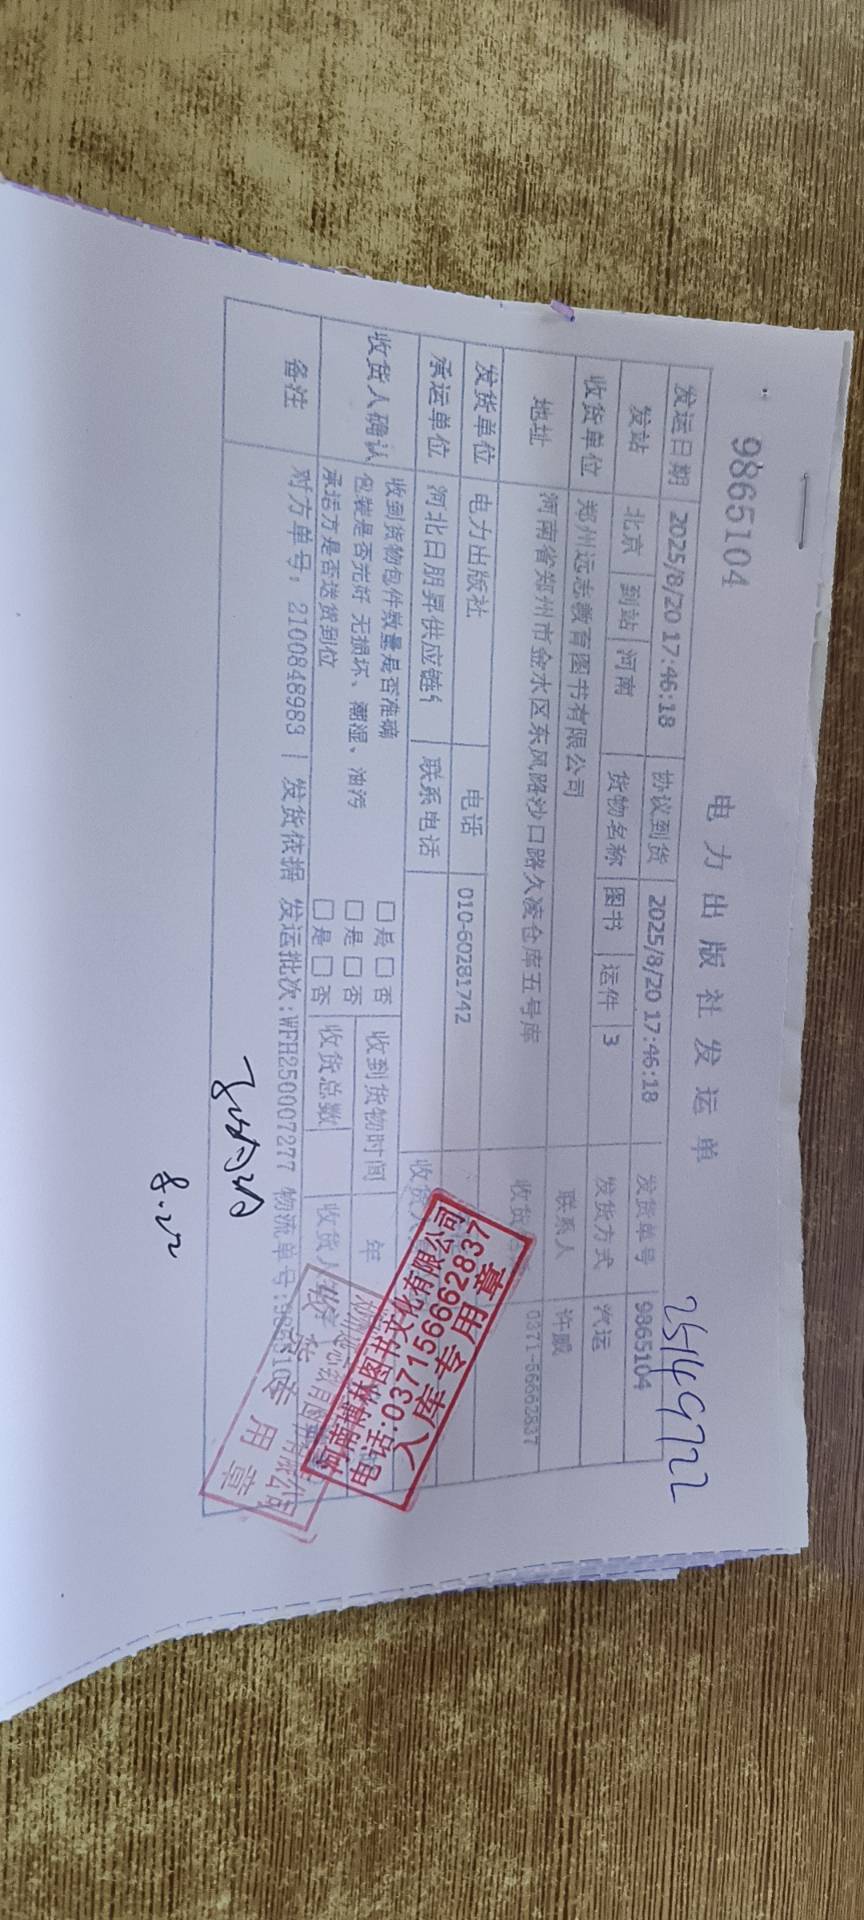 9865104
电力出版社发运单
25149722
发运日期 2025/8/20 17:46:18 协议到货 2025/8/20 17:46:18 发货单号 9865104
发站 北京 到站 河南 货物名称 图书 运件 3 发货方式 汽运
收货单位 郑州远志教育图书有限公司 联系人 许威
地址 河南省郑州市金水区东风路沙口路久凌仓库五号库 收货 0371-56662837
发货单位 电力出版社 电话 010-60281742
承运单位 河北日朋昇供应链 联系电话 收货人
收货人确认 收到货物包件数量是否准确 □是 □否 收到货物时间 年
包装是否完好 无损坏、潮湿、油污 □是 □否
承运方是否送货到位 □是 □否 收货总数 收货人
备注 对方单号: 2100848983 | 发货依据 发运批次:WFH250007277 物流单号:9865104
河南博林图书文化有限公司
电话:037156662837
入库专用章
专用章
8.22